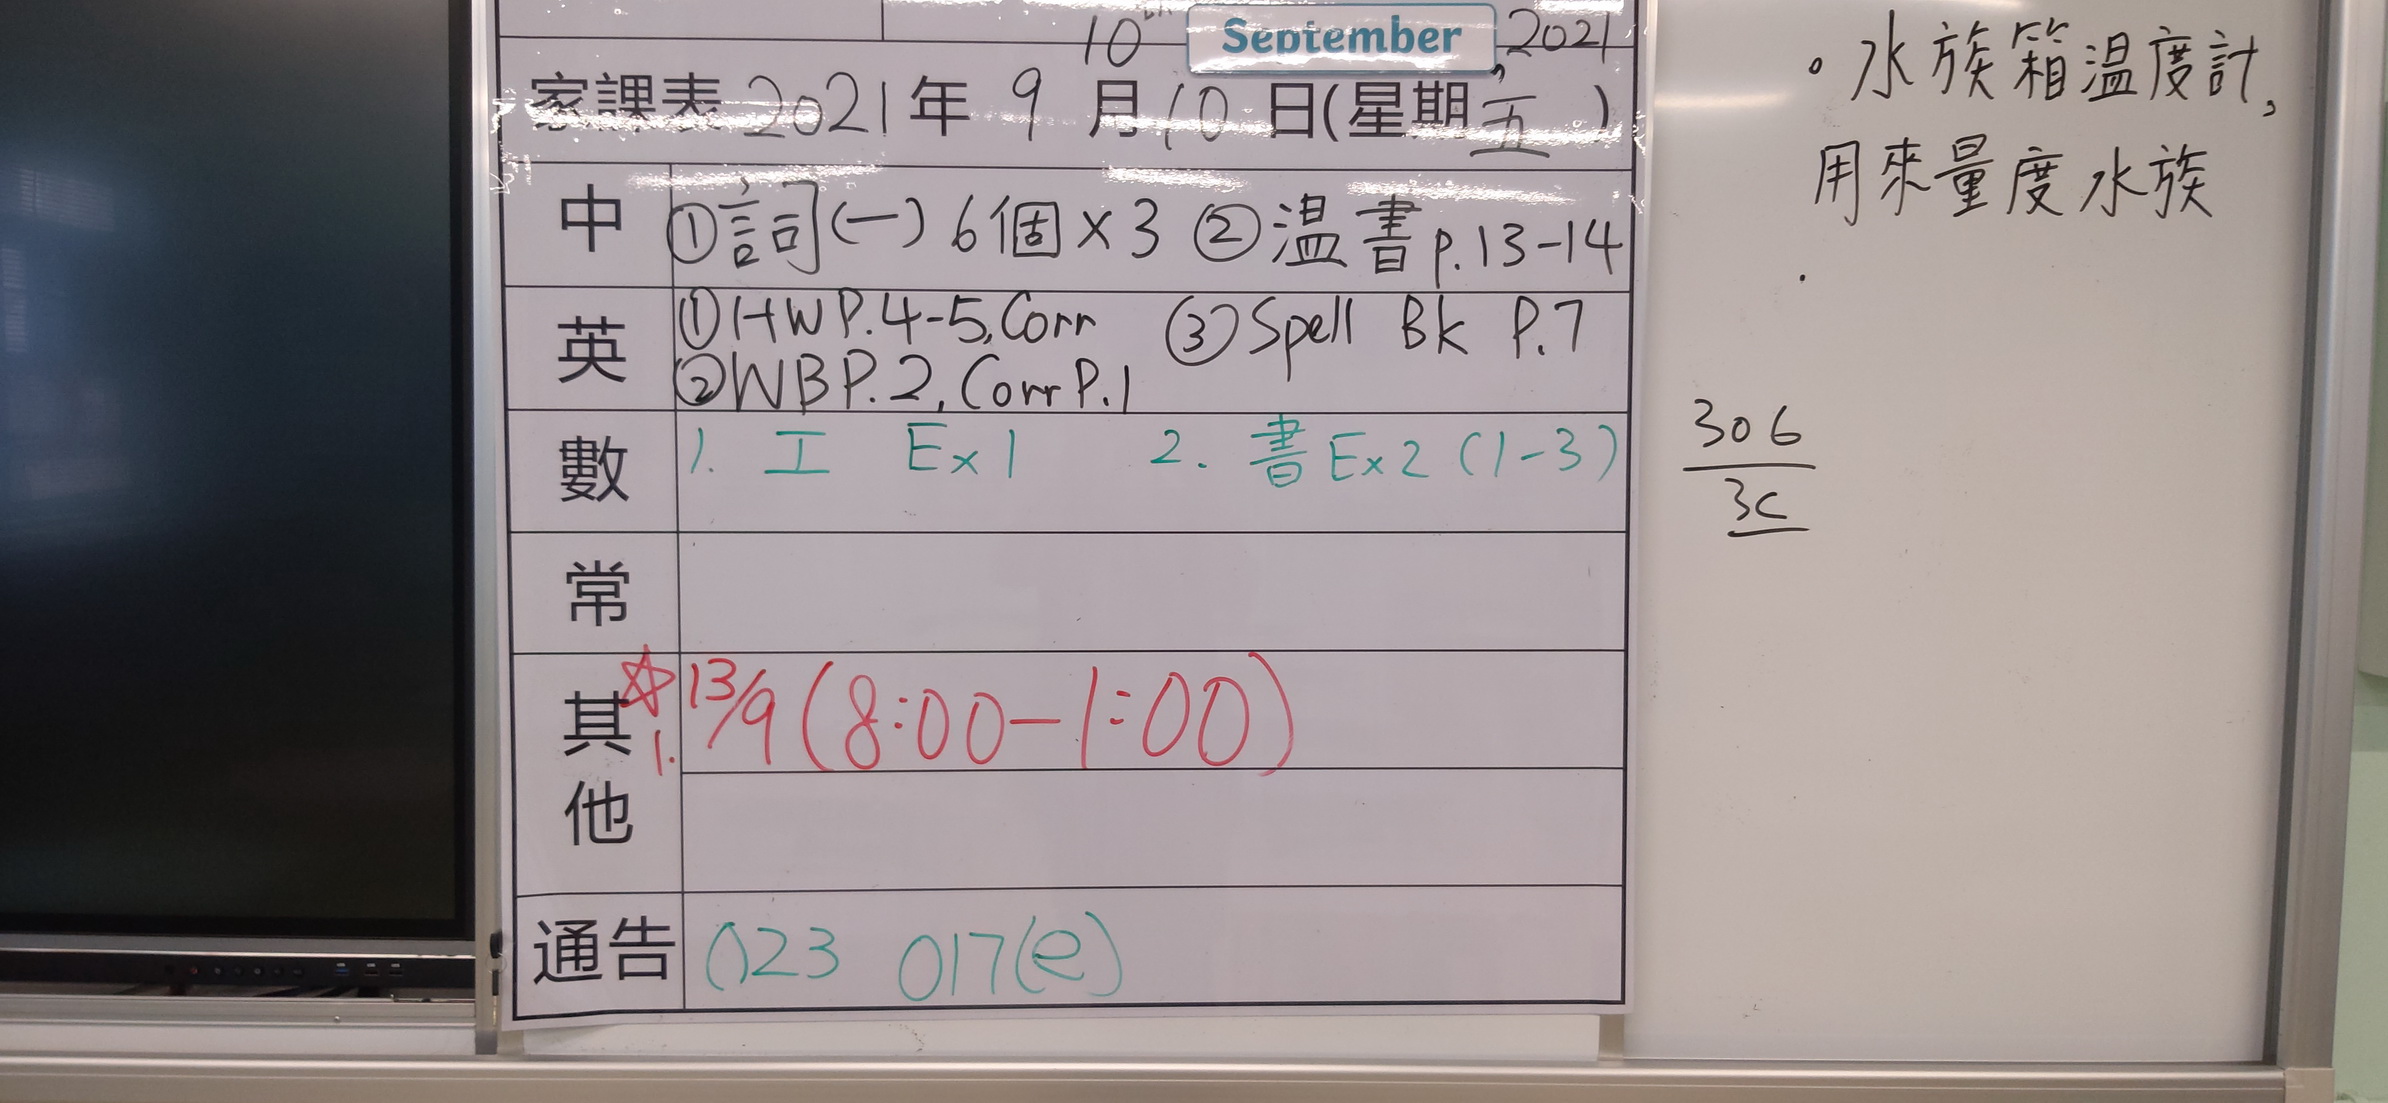 10th September, 2021
家課表 2021年 9 月 10 日(星期 五 )
中 ①詞(一) 6個×3 ②溫書 p.13-14
英 ①HW P.4-5, Corr ③Spell Bk P.7
②WB P.2, Corr P.1
數 1. 工 Ex 1 2. 書 Ex 2 (1-3)
常
其他 ☆ 1. 13/9 (8:00-1:00)
通告 023 017(e)
。水族箱溫度計,
用來量度水族
.
306
3C